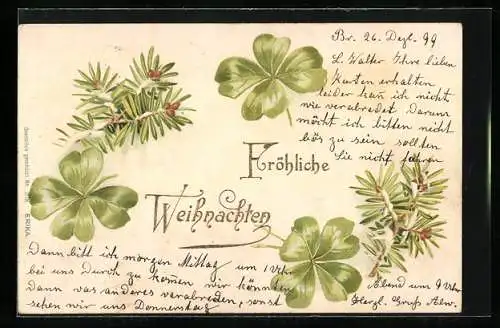 Br. 26. Dezb. 99
L. Walter Ihre lieben
Karten erhalten
leider kan ich nicht
wie verabredet. Darum
möcht ich bitten nicht
bös zu sein sollten
Sie nicht fahren
Fröhliche
Weihnachten
Gesetzlich geschützt ERIKA
Dann bitt ich morgen Mittag um 1 Uhr
bei uns Durch zu kommen wir könnten
Dann was anderes verabreden, sonst
sehen wir uns Donnerstag
Abend um 9 Uhr
Herzl. Gruß